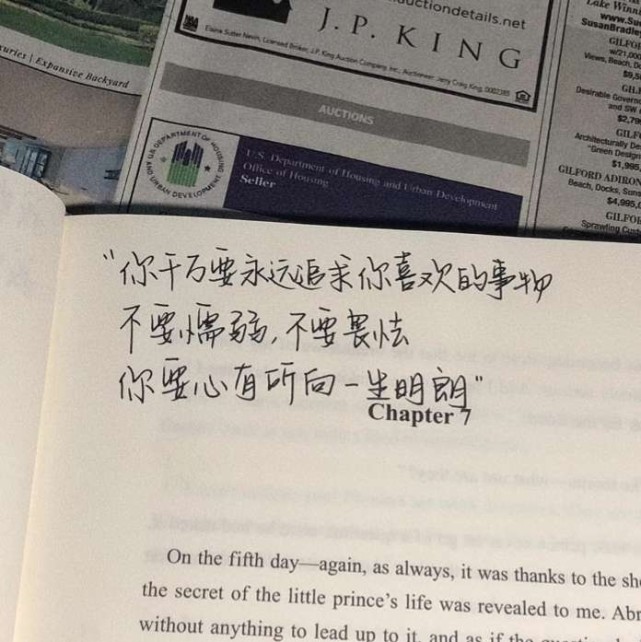 uctiondetails.net
J.P. KING
Elaine Sutter Nevin, Licensed Broker, J.P. King Auction Company, Inc., Auctioneer: Jerry Craig King, 0002385
xuries | Expansive Backyard
AUCTIONS
U.S. DEPARTMENT OF HOUSING
URBAN DEVELOPMENT
U.S. Department of Housing and Urban Development
Office of Housing
Seller
Lake Winni
www.Su
SusanBradley
GILFO
w/21,000
Views, Beach, Do
GIL
Desirable Govern
and SW
$2,79
GIL
Architecturally De
"Green Design
$1,995,
GILFORD ADIRON
Beach, Docks, Sun
$4,995,0
GILFO
Sprawling Cust
"你千万要永远追求你喜欢的事物
不要懦弱,不要畏怯
你要心有所向一生明朗"
Chapter 7
On the fifth day—again, as always, it was thanks to the she
the secret of the little prince's life was revealed to me. Abr
without anything to lead up to it, and as if the question